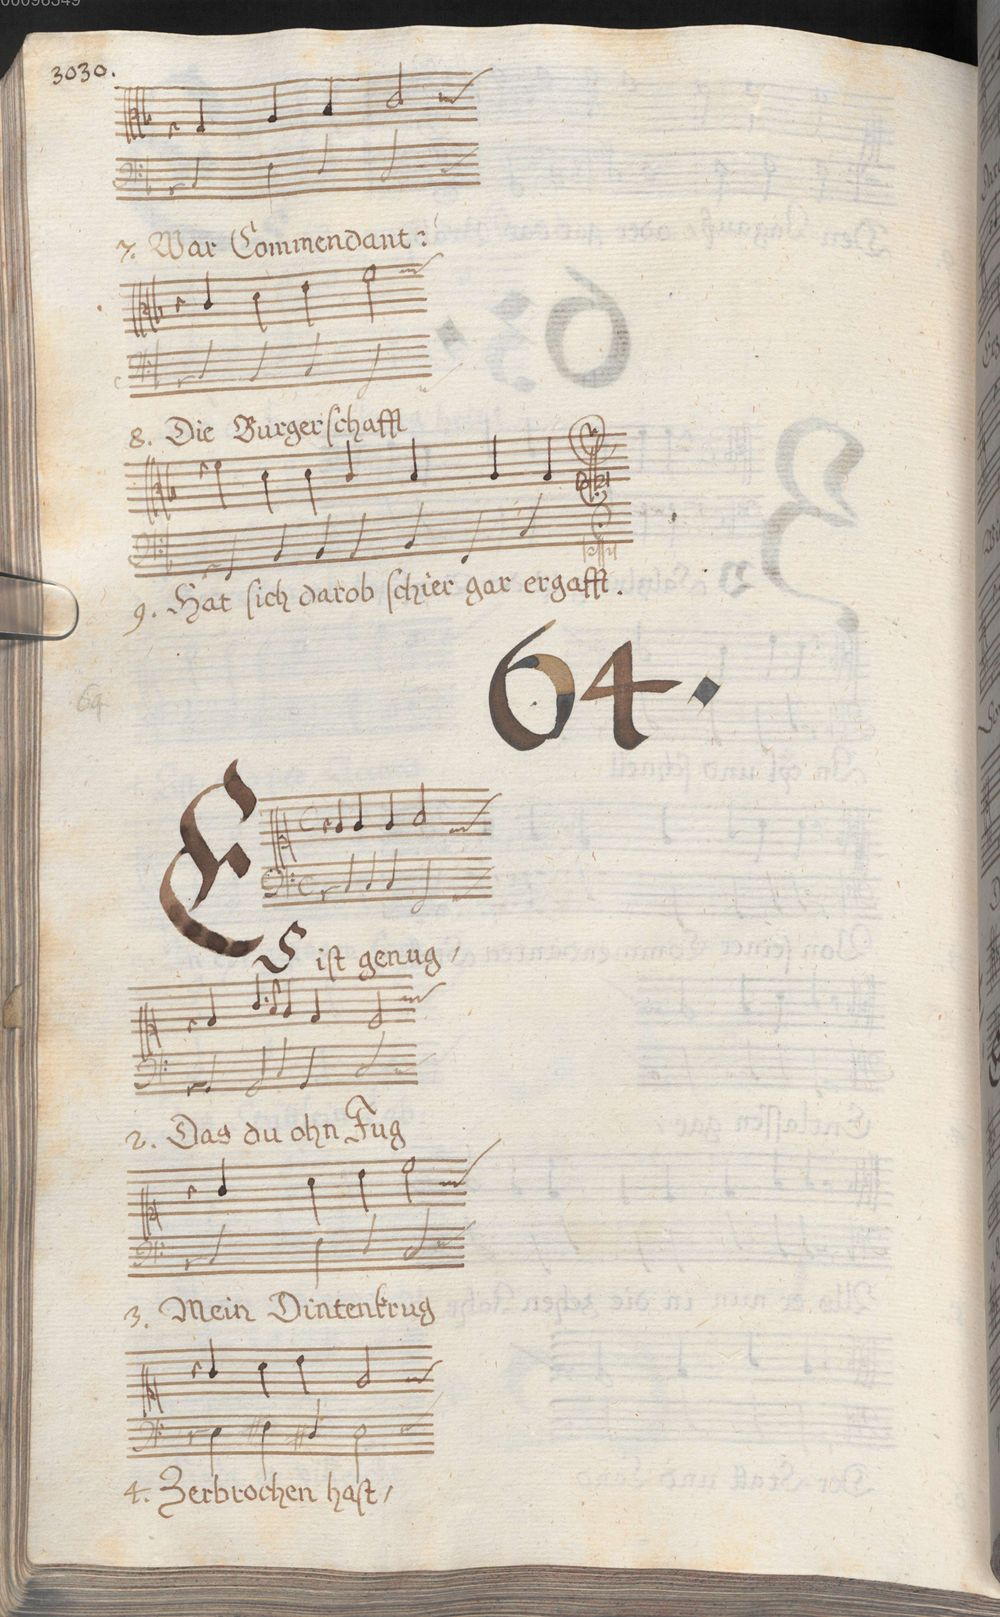 00096349
3030.
7. War Commendant:
8. Die Burgerschafft
9. Hat sich darob schier gar ergafft.
64.
69
Es ist genug,
2. Das du ohn Fug
3. Mein Dintenkrug
4. Zerbrochen hast,